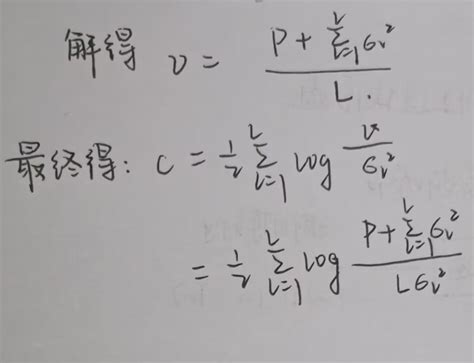 解得 ν = \frac{P + \sum_{i=1}^{L} σ_i^2}{L}.
最终得: C = \frac{1}{2} \sum_{i=1}^{L} \log \frac{ν}{σ_i^2}
= \frac{1}{2} \sum_{i=1}^{L} \log \frac{P + \sum_{i=1}^{L} σ_i^2}{L σ_i^2}